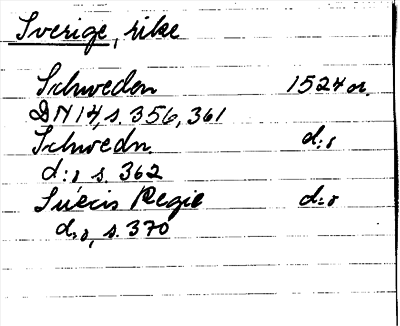 Sverige, rike
Schweden 1524 or.
DN 14, s. 356, 361
Schwedn. d:o
d:o s. 362
Suecis Regie d:o
d:o, s. 370